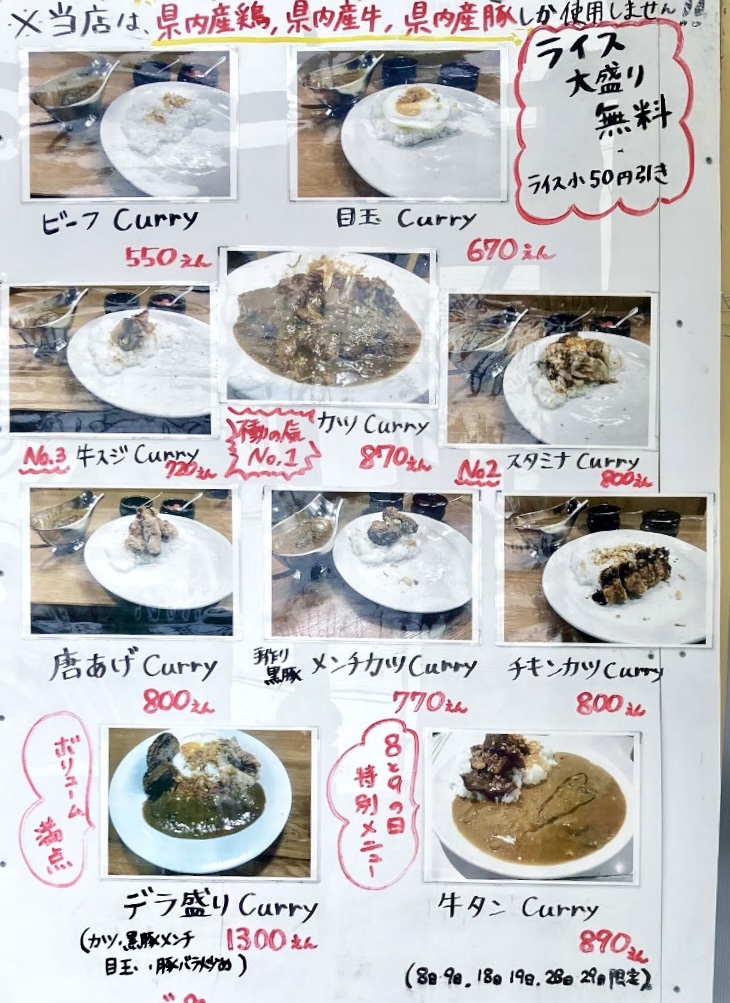 ※当店は、県内産鶏,県内産牛,県内産豚しか使用しません!!
ライス
大盛り
無料
ライス小50円引き
ビーフ Curry
550えん
目玉 Curry
670えん
No.3 牛スジ Curry
720えん
不動の人気
No.1
カツ Curry
870えん
No2 スタミナ Curry
800えん
唐あげ Curry
800えん
手作り
黒豚 メンチカツ Curry
770えん
チキンカツ Curry
800えん
ボリューム
満点
デラ盛り Curry
(カツ、黒豚メンチ 1300えん
目玉、豚バラ炒め)
8と9の日
特別メニュー
牛タン Curry
890えん
(8日.9日.18日19日.28日29日限定)